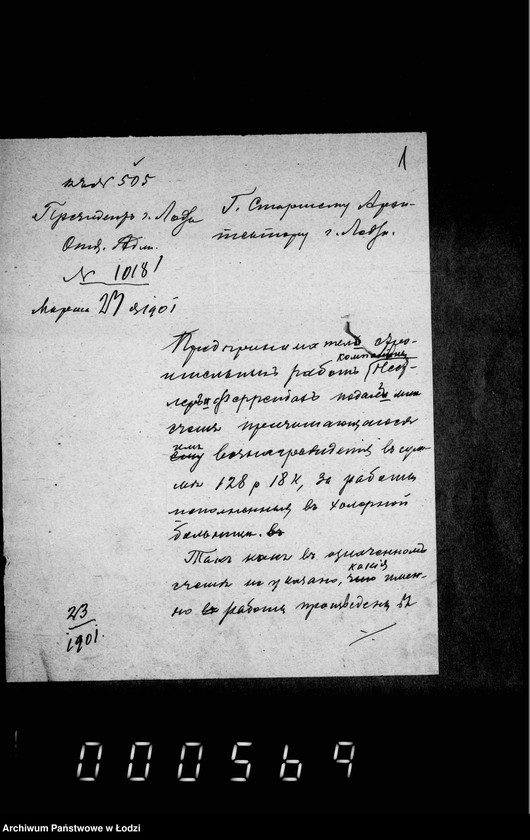 1
№ 505
Президентъ г. Лодзи
Отд. Адм.
№ 10181
Марта 23 дня 1901
Г. Старшему Архи-
тектору г. Лодзи.
Предприниматель стро-
компаньи
ительныхъ работъ Нест-
леръ и Ферренбахъ подалъ мнѣ
счетъ причитающагося
имъ
ему вознагражденія въ сум-
мѣ 128 р 18 к, за работы
исполненныя въ холерной
больницѣ. въ
Такъ какъ въ означенномъ
какія
счетѣ не указано, что имен-
но въ работы произведены
23
1901.
000569
Archiwum Państwowe w Łodzi